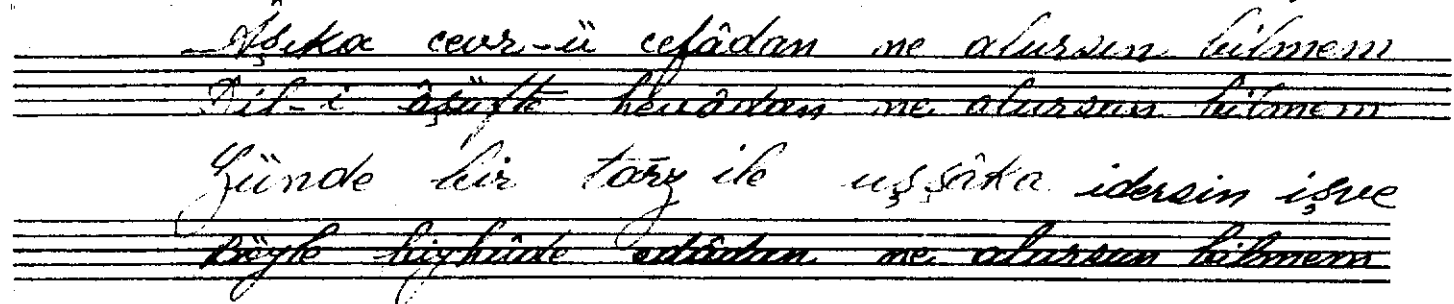 Âşıka cevr-ü cefâdan ne alursın bilmem
Dil-i âşüfte hevâdan ne alursun bilmem
Günde bir tarz ile uşşâka idersin işve
Böyle bîyhûde edâdan ne alursun bilmem